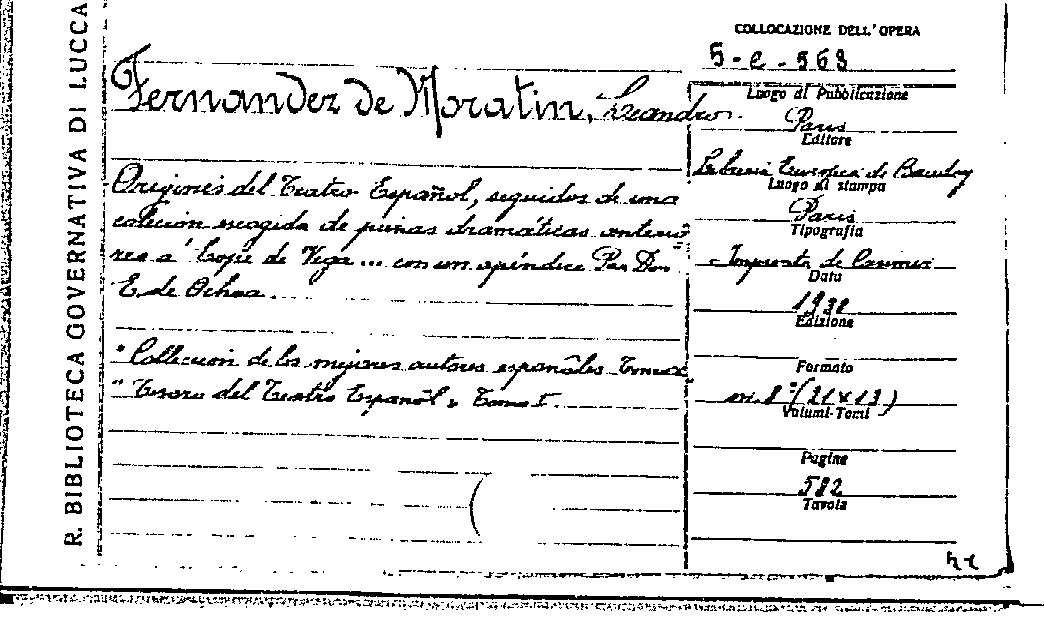 R. BIBLIOTECA GOVERNATIVA DI LUCCA
COLLOCAZIONE DELL'OPERA
5-e-563
Fernandez de Moratin, Leandro.
Origines del Teatro Español, seguidos de una
colección escogida de piezas dramáticas anterio
res a' Lope de Vega ... con un apéndice Por Don
E. de Ochoa.
"Collecion de los mejores autores españoles Tomo X
"Tesoro del Teatro Español, Tomo I.
Luogo di Pubblicazione
Paris
Editore
Libreria Europea de Baudry
Luogo di stampa
Paris
Tipografia
Imprenta de
Data
1938
Edizione
Formato
in 8° (21x13)
Volumi-Tomi
Pagine
582
Tavole